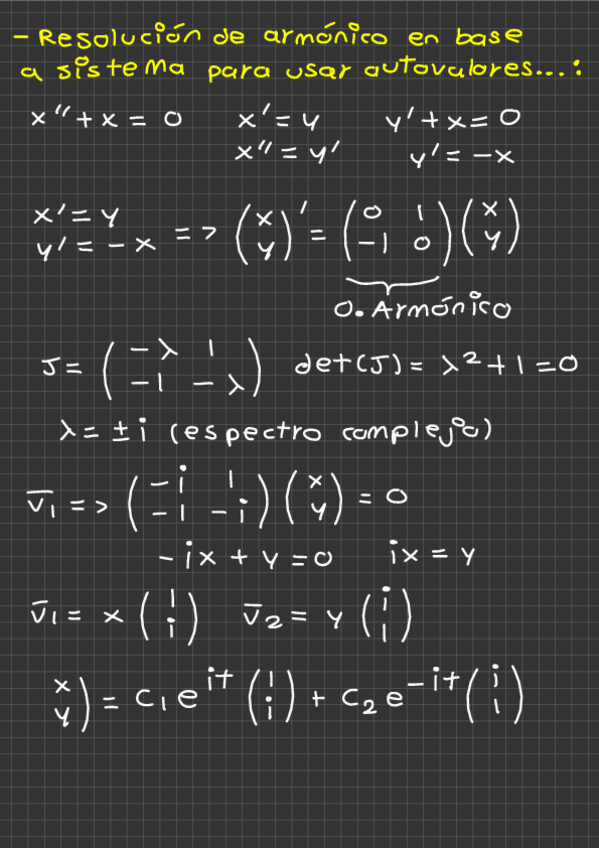 - Resolución de armónico en base
a sistema para usar autovalores...:
x'' + x = 0   x' = y   y' + x = 0
x'' = y'   y' = -x
x' = y
y' = -x => (x y)' = (0 1 -1 0)(x y)
O. Armónico
J = (-λ 1 -1 -λ)   det(J) = λ² + 1 = 0
λ = ± i (espectro complejo)
v̄₁ => (-i 1 -1 -i)(x y) = 0
-ix + y = 0   ix = y
v̄₁ = x (1 i)   v̄₂ = y (i 1)
x y) = C₁e^it (1 i) + C₂e^-it (i 1)